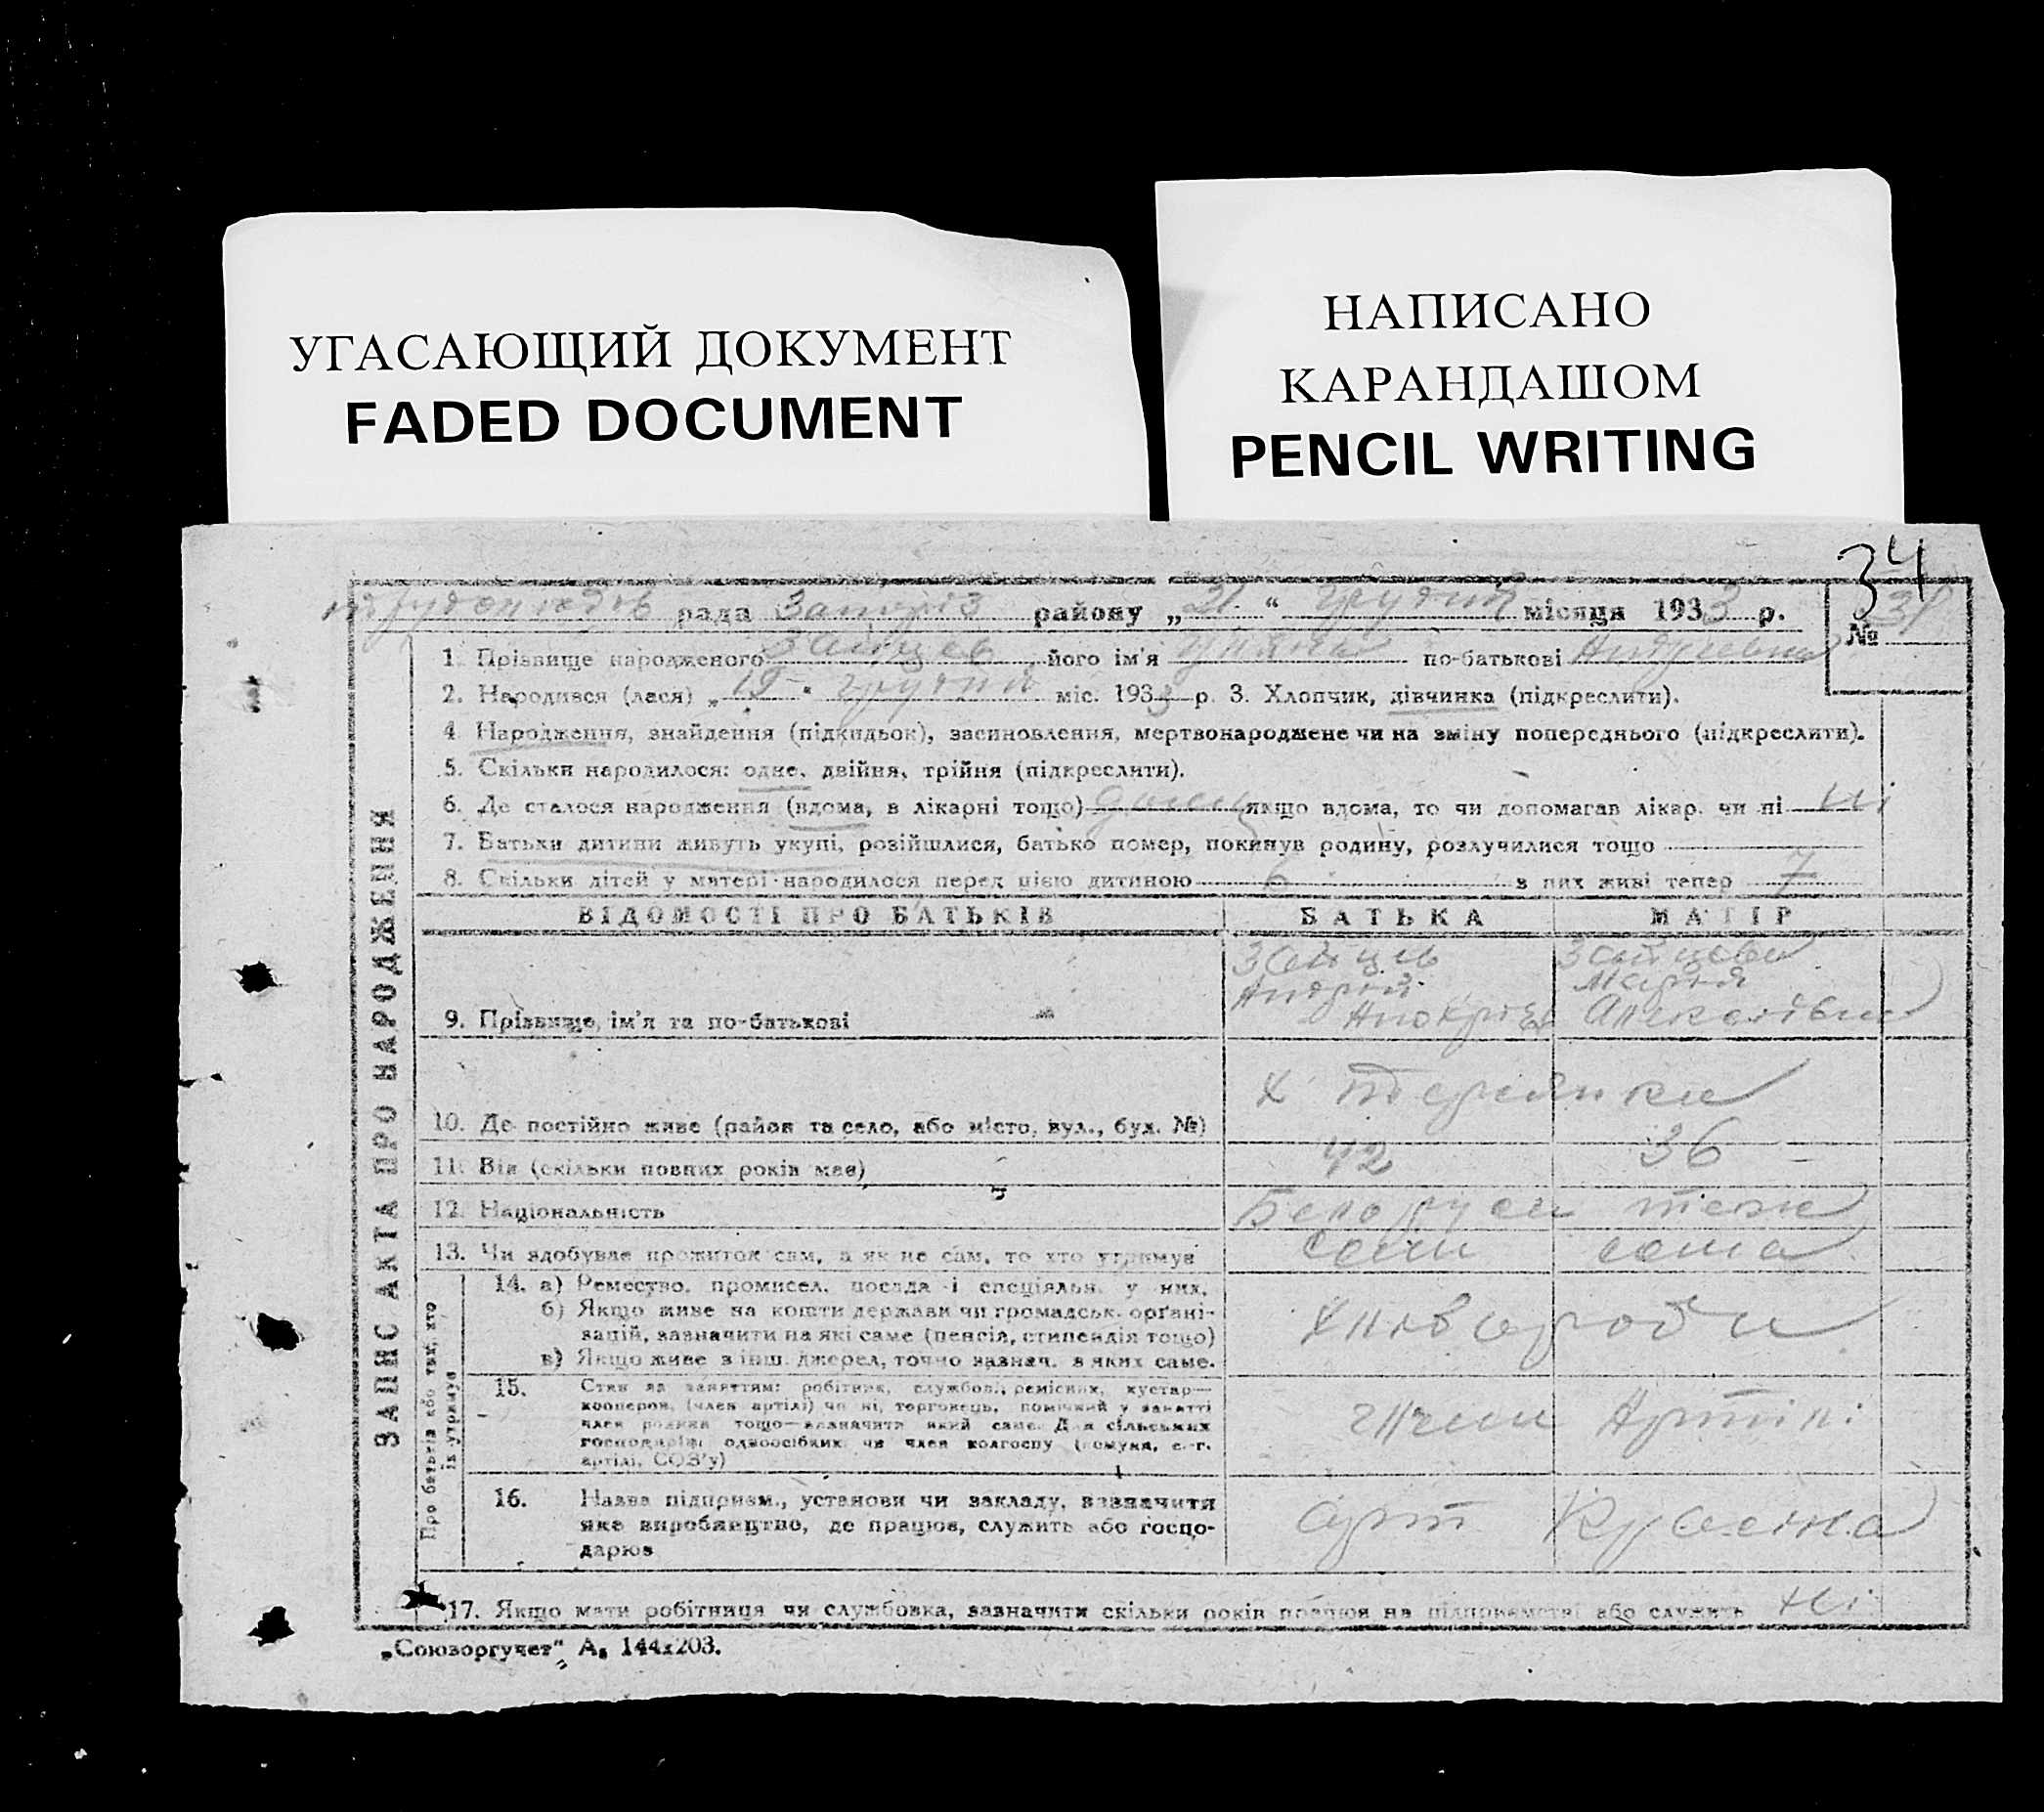 УГАСАЮЩИЙ ДОКУМЕНТ
FADED DOCUMENT
НАПИСАНО
КАРАНДАШОМ
PENCIL WRITING
34
рада Запоріз району „21“ грудня місяця 1933 р.
№ 34
1. Прізвище народженого Зайцев його ім'я по-батькові Андріевна
2. Народився (лася) „15“ грудня міс. 1933 р. 3. Хлопчик, дівчинка (підкреслити).
4. Народження, знайдення (підкидьок), засиновлення, мертвонароджене чи на зміну попереднього (підкреслити).
5. Скільки народилося: одне, двійня, трійня (підкреслити).
6. Де сталося народження (вдома, в лікарні тощо) якщо вдома, то чи допомагав лікар. чи ні ні
7. Батьки дитини живуть укупі, розійшлися, батько помер, покинув родину, розлучилися тощо
8. Скільки дітей у матері народилося перед цією дитиною 6 з них живі тепер 7
ЗАПИС АКТА ПРО НАРОДЖЕННЯ
ВІДОМОСТІ ПРО БАТЬКІВ БАТЬКА МАТІР
9. Прізвище, ім'я та по-батькові
Зайцев
Андрій
Зайцева
Марія
10. Де постійно живе (район та село, або місто, вул., буд. №)
Х
11. Вік (скільки повних років має) 42 36
12. Національність Белоруси теж
13. Чи здобуває прожиток сам, а як не сам, то хто утримує сам сама
Про батьків або тих, хто їх утримує
14. а) Ремество, промисел, посада і спеціяльн. у них.
б) Якщо живе на кошти держави чи громадськ. орґані-
зацій, зазначити на які саме (пенсія, стипендія тощо)
в) Якщо живе з інш. джерел, точно зазнач. з яких саме.
Хлібороби
15. Стан за заняттям: робітник, службов., ремісник, кустар—
кооперов. (член артілі) чи ні, торговець, помічний у занятті
член родини тощо—зазначити який саме. Для сільських
господарів: одноосібник чи член колгоспу (комуна, с.-г.
артілі, СОЗ'у)
Члени Артілі
16. Назва підприєм., установи чи закладу, зазначити
яке виробництво, де працює, служить або госпо-
дарює
арт
17. Якщо мати робітниця чи службовка, зазначити скільки років працює на підприємстві або служить ні
„Союзоргучет“ А5 144х203.